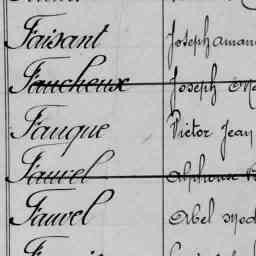 Faisant Joseph
Faucheux Joseph
Fauque Victor Jean
Fauvel Alphonse
Fauvel Abel